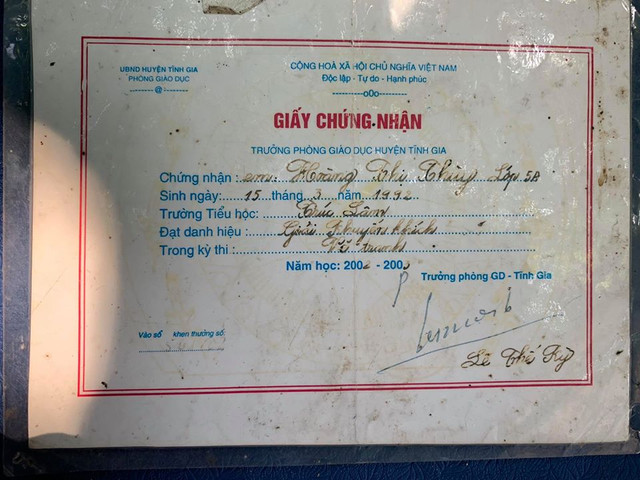 UBND HUYỆN TĨNH GIA
PHÒNG GIÁO DỤC
--------@--------
CỘNG HOÀ XÃ HỘI CHỦ NGHĨA VIỆT NAM
Độc lập - Tự do - Hạnh phúc
----------o0o----------
GIẤY CHỨNG NHẬN
TRƯỞNG PHÒNG GIÁO DỤC HUYỆN TĨNH GIA
Chứng nhận : em: Hoàng Thị Thùy Lớp 5A
Sinh ngày: 15 tháng 3 năm 1992
Trường Tiểu học: Trúc Lâm
Đạt danh hiệu : Giải Khuyến khích
Trong kỳ thi : Vẽ tranh
Năm học: 2002 - 2003
Trưởng phòng GD - Tĩnh Gia
Vào sổ khen thưởng số:
Lê Thế Kỷ